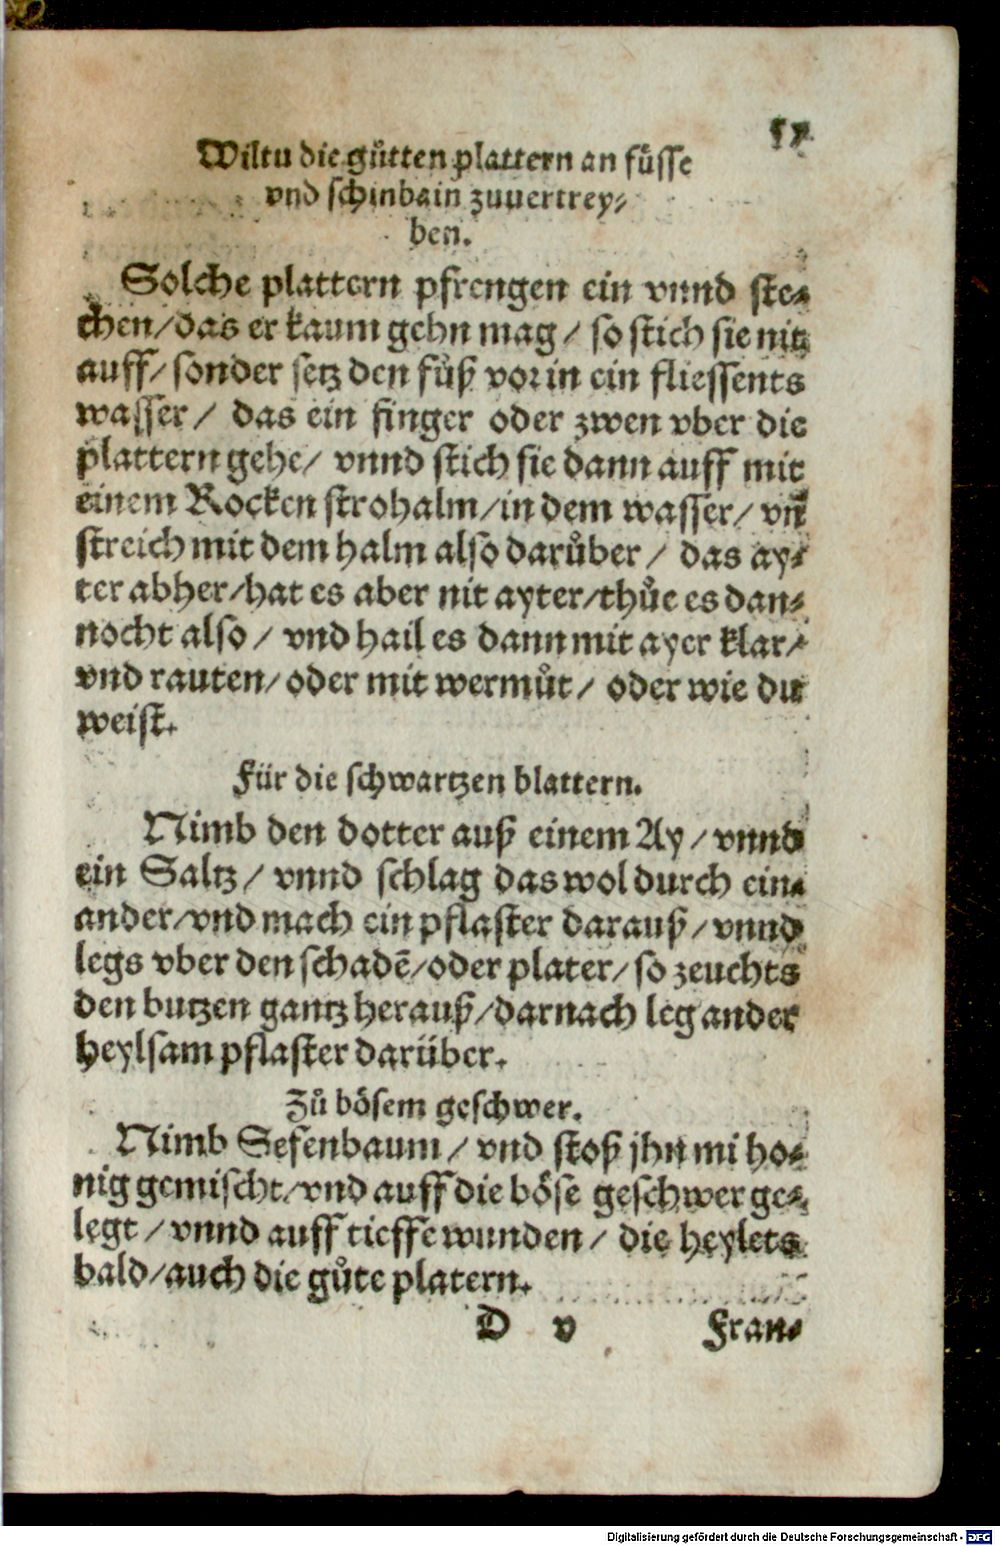 57
Wiltu die gůtten plattern an füsse
vnd schinbain zuuertrey⸗
ben.
Solche plattern pfrengen ein vnnd ste⸗
chen/das er kaum gehn mag/ so stich sie nit
auff/sonder setz den fůß vor in ein fliessents
wasser/ das ein finger oder zwen vber die
plattern gehe/ vnnd stich sie dann auff mit
einem Rocken strohalm/in dem wasser/ vñ
streich mit dem halm also darůber/ das ay⸗
ter abher/hat es aber nit ayter/thůe es dan⸗
nocht also/ vnd hail es dann mit ayer klar/
vnd rauten/ oder mit wermůt/ oder wie du
weist.
Für die schwartzen blattern.
Nimb den dotter auß einem Ay/ vnnd
ein Saltz/ vnnd schlag das wol durch ein⸗
ander/vnd mach ein pflaster darauß/ vnnd
legs vber den schadē/oder plater/ so zeuchts
den butzen gantz herauß/darnach leg ander
heylsam pflaster darüber.
Zů bösem geschwer.
Nimb Sefenbaum/ vnd stoß jhn mi ho⸗
nig gemischt/vnd auff die böse geschwer ge⸗
legt/ vnnd auff tieffe wunden/ die heylets
bald/auch die gůte platern.
D v Fran⸗
Digitalisierung gefördert durch die Deutsche Forschungsgemeinschaft - DFG